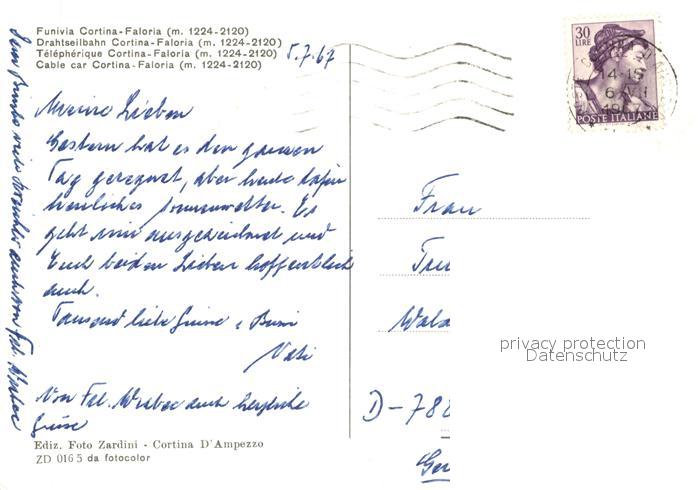 Funivia Cortina-Faloria (m. 1224-2120)
Drahtseilbahn Cortina-Faloria (m. 1224-2120)
Téléphérique Cortina-Faloria (m. 1224-2120)
Cable car Cortina-Faloria (m. 1224-2120)
5.7.67
Meine Lieben
Gestern hat es den ganzen
Tag geregnet, aber heute dafür
herrliches Sonnenwetter. Es
geht mir ausgezeichnet und
Euch beiden Lieben hoffentlich
auch.
Tausend liebe Grüsse + Bussi
Vati
Von Frl. auch herzliche
Grüsse
Ediz. Foto Zardini - Cortina D'Ampezzo
ZD 0165 da fotocolor
30
LIRE
POSTE ITALIANE
14-15
1967
Frau
D-788
privacy protection
Datenschutz